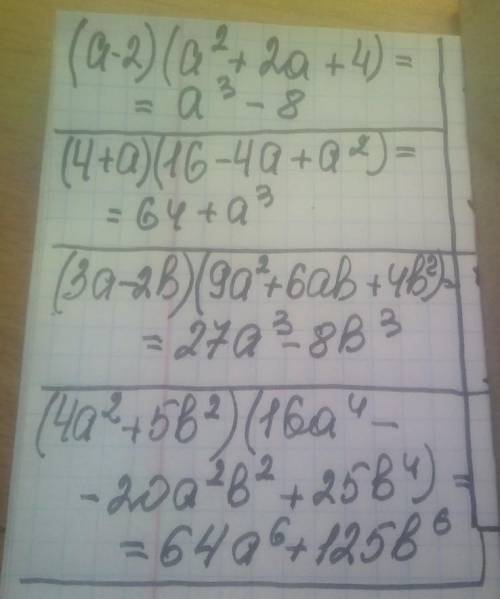 (a-2)(a²+2a+4)=
=a³-8
(4+a)(16-4a+a²)=
=64+a³
(3a-2b)(9a²+6ab+4b²)=
=27a³-8b³
(4a²+5b²)(16a⁴-
-20a²b²+25b⁴)=
=64a⁶+125b⁶